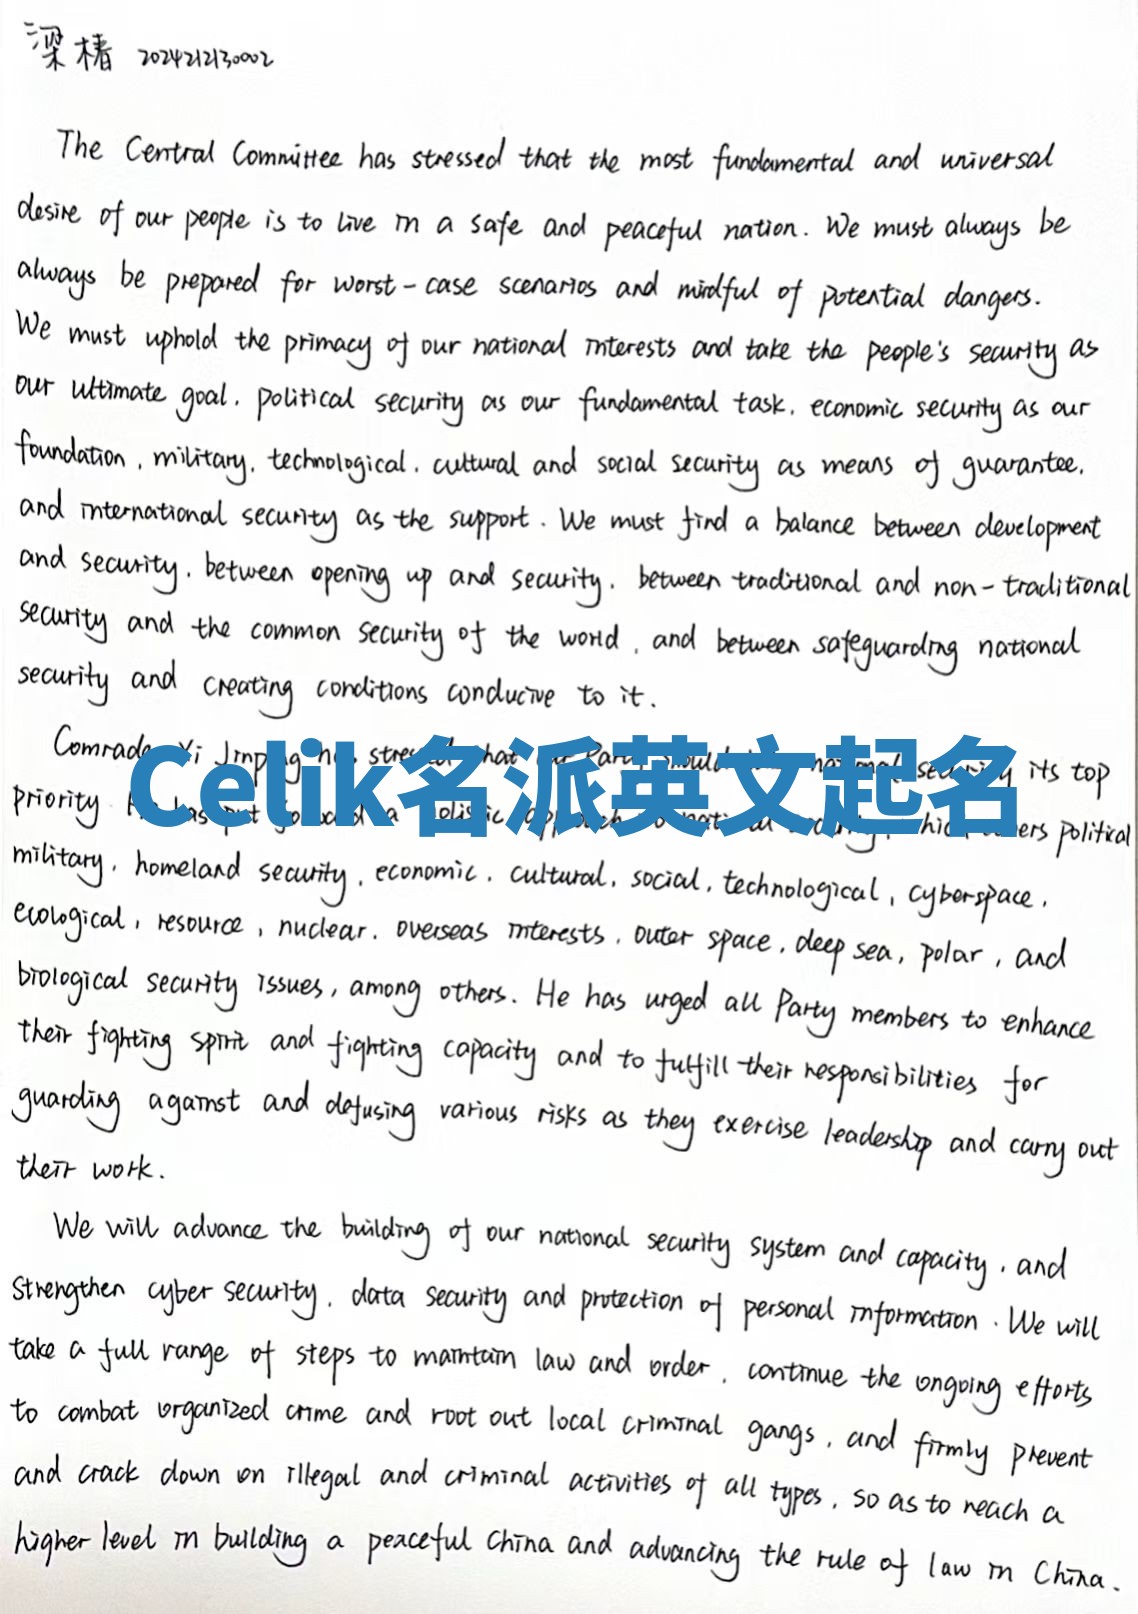 梁椿 2024212130002
The Central Committee has stressed that the most fundamental and universal
desire of our people is to live in a safe and peaceful nation. We must always be
always be prepared for worst-case scenarios and mindful of potential dangers.
We must uphold the primacy of our national interests and take the people's security as
our ultimate goal, political security as our fundamental task, economic security as our
foundation, military, technological, cultural and social security as means of guarantee,
and international security as the support. We must find a balance between development
and security, between opening up and security, between traditional and non-traditional
security and the common security of the world, and between safeguarding national
security and creating conditions conducive to it.
Comrade Xi Jinping has stressed that Party should national security its top
priority. He has put a holistic approach to national security, which covers political
military, homeland security, economic, cultural, social, technological, cyberspace,
ecological, resource, nuclear, overseas interests, outer space, deep sea, polar, and
biological security issues, among others. He has urged all Party members to enhance
their fighting spirit and fighting capacity and to fulfill their responsibilities for
guarding against and defusing various risks as they exercise leadership and carry out
their work.
We will advance the building of our national security system and capacity, and
strengthen cyber security, data security and protection of personal information. We will
take a full range of steps to maintain law and order, continue the ongoing efforts
to combat organized crime and root out local criminal gangs, and firmly prevent
and crack down on illegal and criminal activities of all types, so as to reach a
higher level in building a peaceful China and advancing the rule of law in China.
Celik名派英文起名